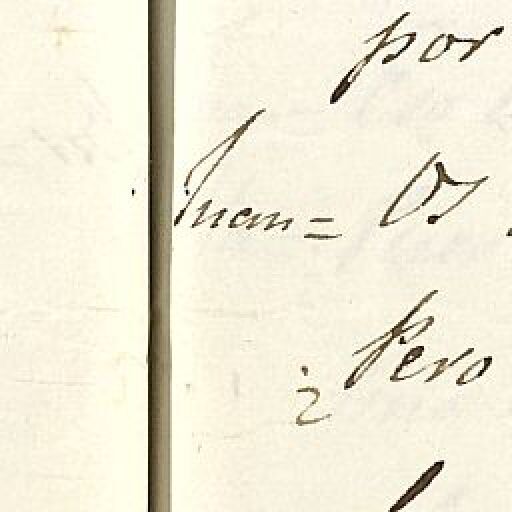 por
Juan = Os
Pero
¿